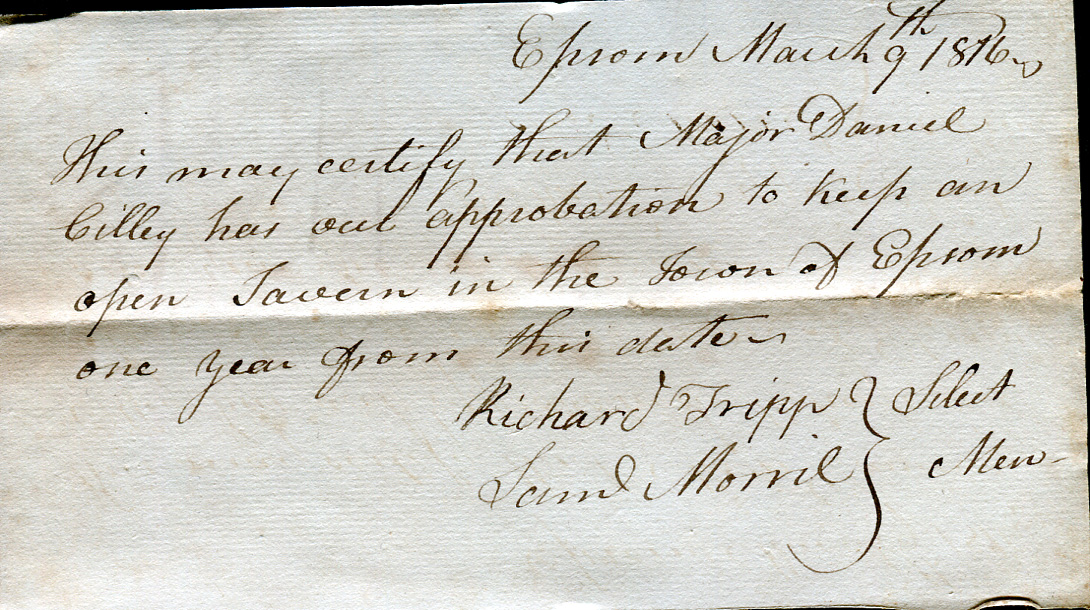 Epsom March 9th 1816
This may certify that Major Daniel
Cilley has our approbation to keep an
open Tavern in the Town of Epsom
one year from this date
Richard Tripp } Select
Saml Morril } Men